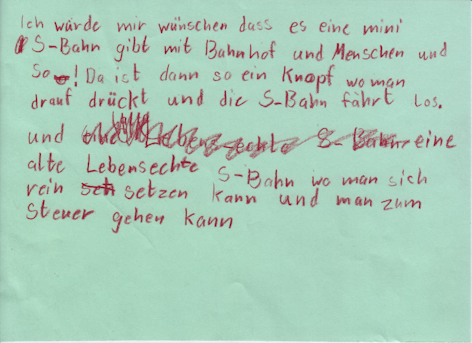 Ich würde mir wünschen dass es eine mini
S-Bahn gibt mit Bahnhof und Menschen und
So! Da ist dann so ein Knopf wo man
drauf drückt und die S-Bahn fährt los.
und eine Lebensechte S-Bahn eine
alte Lebensechte S-Bahn wo man sich
rein setzen kann und man zum
Steuer gehen kann